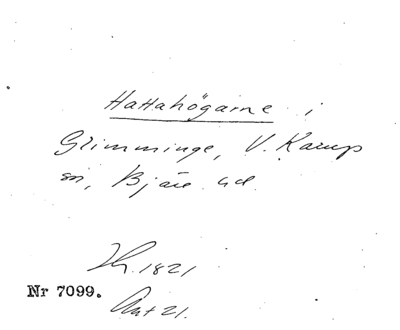 Hattahögarne i
Glimminge, V. Karup
sn, Bjäre hd.
Th. 1821
Nr 7099.
Ant 21.